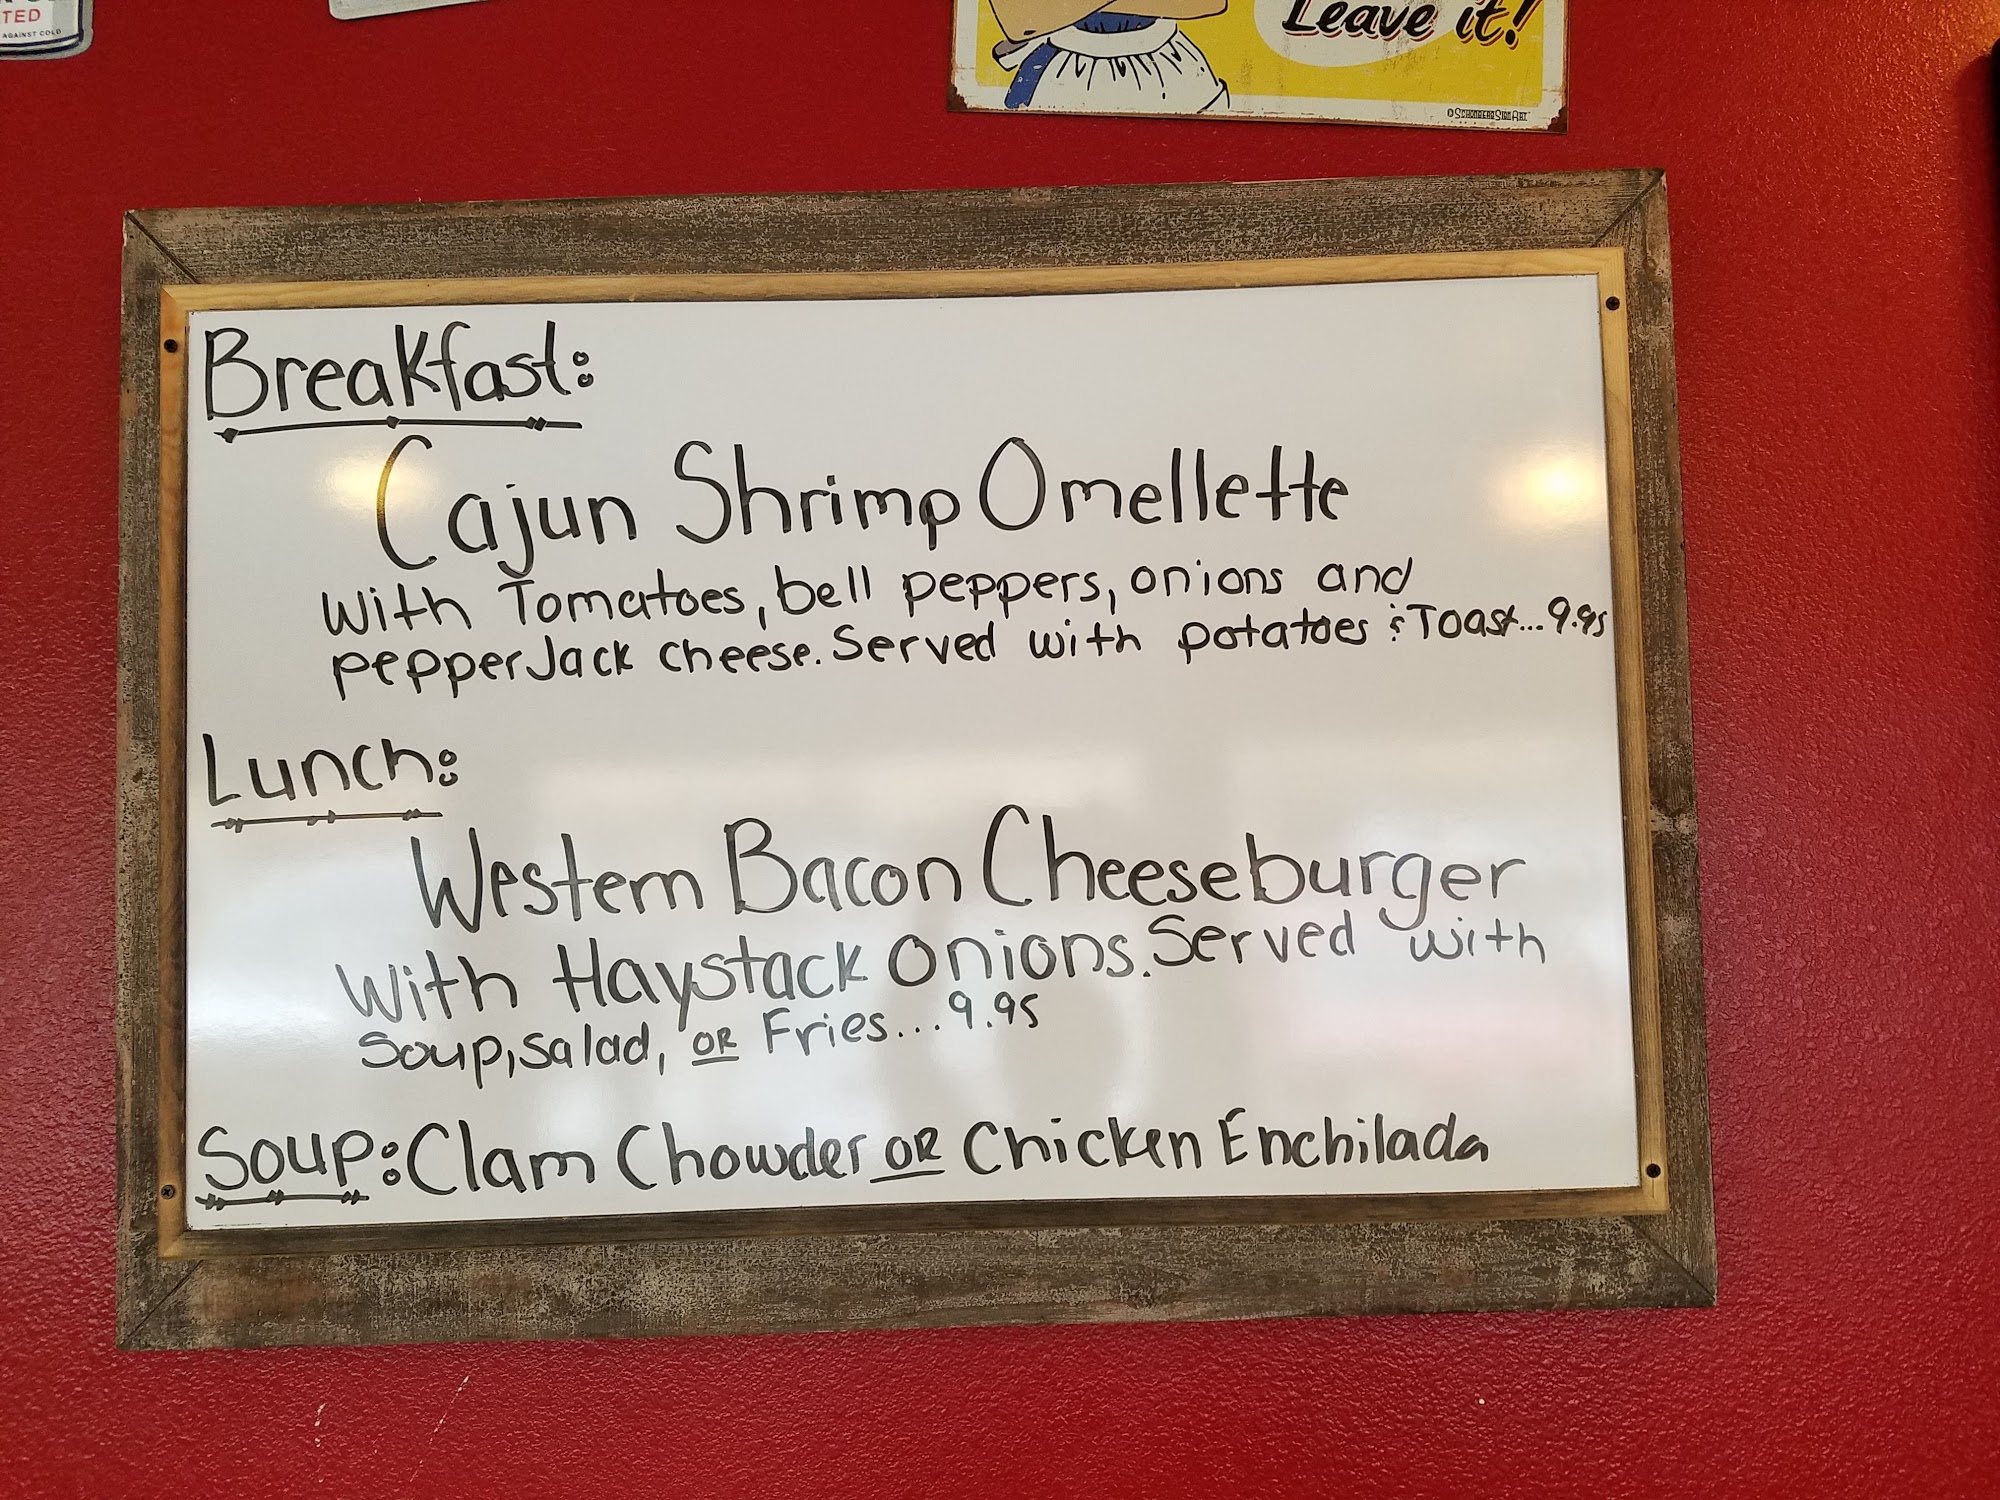 TED
AGAINST COLD
Leave it!
©SCHONBERG SIGN ART
Breakfast:
Cajun Shrimp Omellette
With Tomatoes, bell peppers, onions and
pepperJack cheese. Served with potatoes & Toast...9.95
Lunch:
Western Bacon Cheeseburger
With Haystack Onions. Served with
Soup, salad, OR Fries...9.95
Soup: Clam Chowder OR Chicken Enchilada